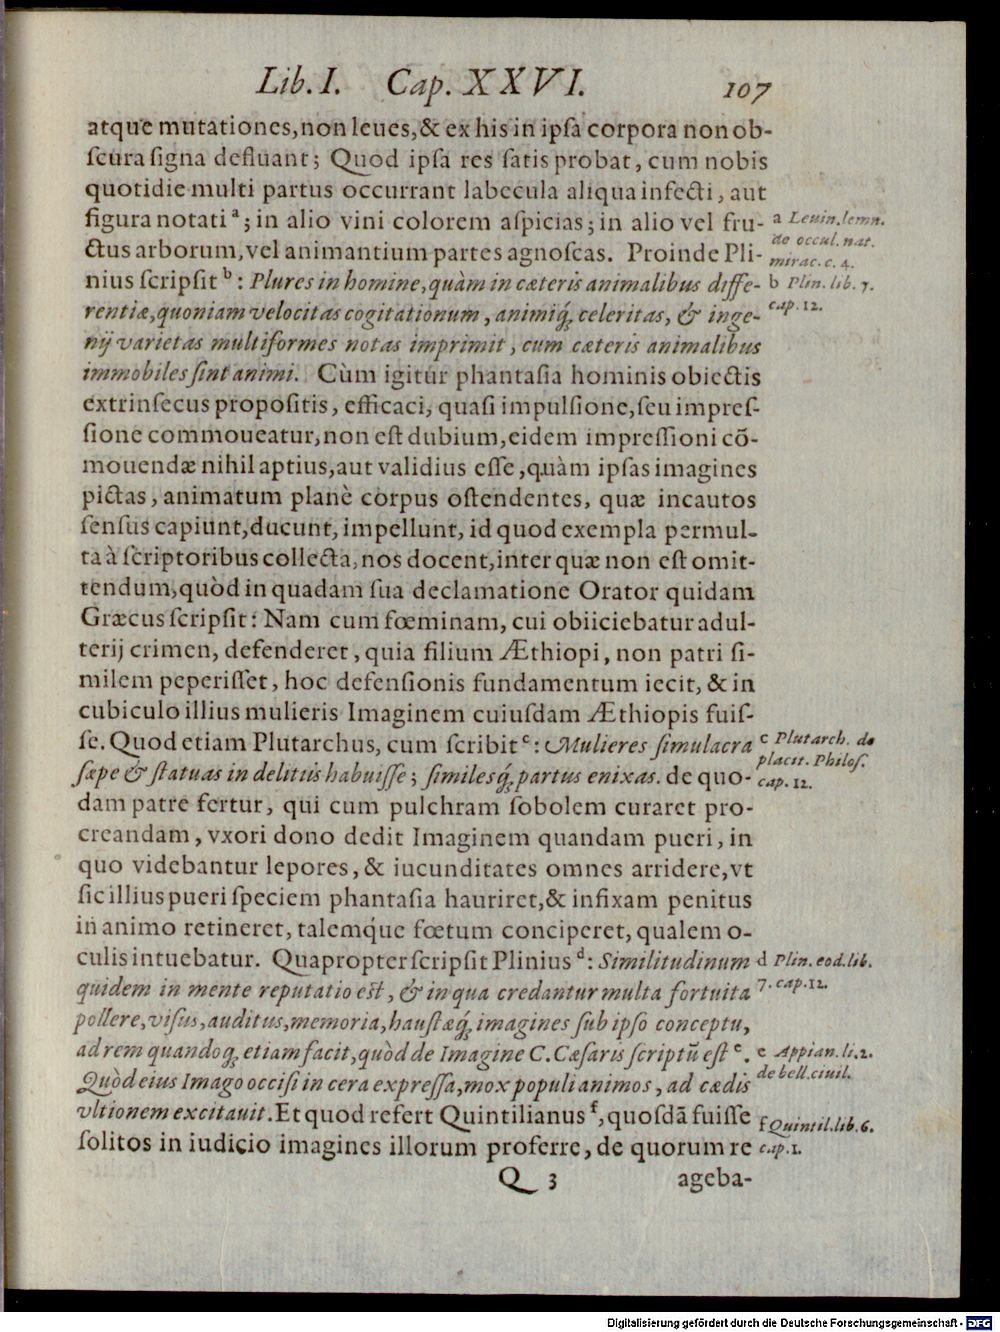 Lib. I. Cap. XXVI. 107
atque mutationes, non leues, & ex his in ipſa corpora non ob-
ſcura ſigna defluant; Quod ipſa res ſatis probat, cum nobis
quotidie multi partus occurrant labecula aliqua infecti, aut
figura notati a; in alio vini colorem aſpicias; in alio vel fru-
ctus arborum, vel animantium partes agnoſcas. Proinde Pli-
nius ſcripſit b: Plures in homine, quàm in cæteris animalibus diffe-
rentiæ, quoniam velocitas cogitationum, animiq́; celeritas, & inge-
nij varietas multiformes notas imprimit, cum cæteris animalibus
immobiles ſint animi. Cùm igitur phantaſia hominis obiectis
extrinſecus propoſitis, efficaci, quaſi impulſione, ſeu impreſ-
ſione commoueatur, non eſt dubium, eidem impreſſioni cõ-
mouendæ nihil aptius, aut validius eſſe, quàm ipſas imagines
pictas, animatum planè corpus oſtendentes, quæ incautos
ſenſus capiunt, ducunt, impellunt, id quod exempla permul-
ta à ſcriptoribus collecta, nos docent, inter quæ non eſt omit-
tendum, quòd in quadam ſua declamatione Orator quidam
Græcus ſcripſit: Nam cum fœminam, cui obiiciebatur adul-
terij crimen, defenderet, quia filium Æthiopi, non patri ſi-
milem peperiſſet, hoc defenſionis fundamentum iecit, & in
cubiculo illius mulieris Imaginem cuiuſdam Æthiopis fuiſ-
ſe. Quod etiam Plutarchus, cum ſcribit c: Mulieres ſimulacra
ſæpe & ſtatuas in delitiis habuiſſe; ſimilesq́; partus enixas. de quo-
dam patre fertur, qui cum pulchram ſobolem curaret pro-
creandam, vxori dono dedit Imaginem quandam pueri, in
quo videbantur lepores, & iucunditates omnes arridere, vt
ſic illius pueri ſpeciem phantaſia hauriret, & infixam penitus
in animo retineret, talemq́ue fœtum conciperet, qualem o-
culis intuebatur. Quapropter ſcripſit Plinius d: Similitudinum
quidem in mente reputatio eſt, & in qua credantur multa fortuita
pollere, viſus, auditus, memoria, hauſtæq́; imagines ſub ipſo conceptu,
ad rem quandoq; etiam facit, quòd de Imagine C. Cæſaris ſcriptũ eſt e.
Quòd eius Imago occiſi in cera expreſſa, mox populi animos, ad cædis
vltionem excitauit. Et quod refert Quintilianus f, quoſdã fuiſſe
ſolitos in iudicio imagines illorum proferre, de quorum re
Q 3 ageba-
a Leuin. lemn.
de occul. nat.
mirac. c. 4.
b Plin. lib. 7.
cap. 12.
c Plutarch. de
placit. Philoſ.
cap. 12.
d Plin. eod. lib.
7. cap. 12.
e Appian. li. 2.
de bell. ciuil.
f Quintil. lib. 6.
cap. 1.
Digitalisierung gefördert durch die Deutsche Forschungsgemeinschaft - DFG